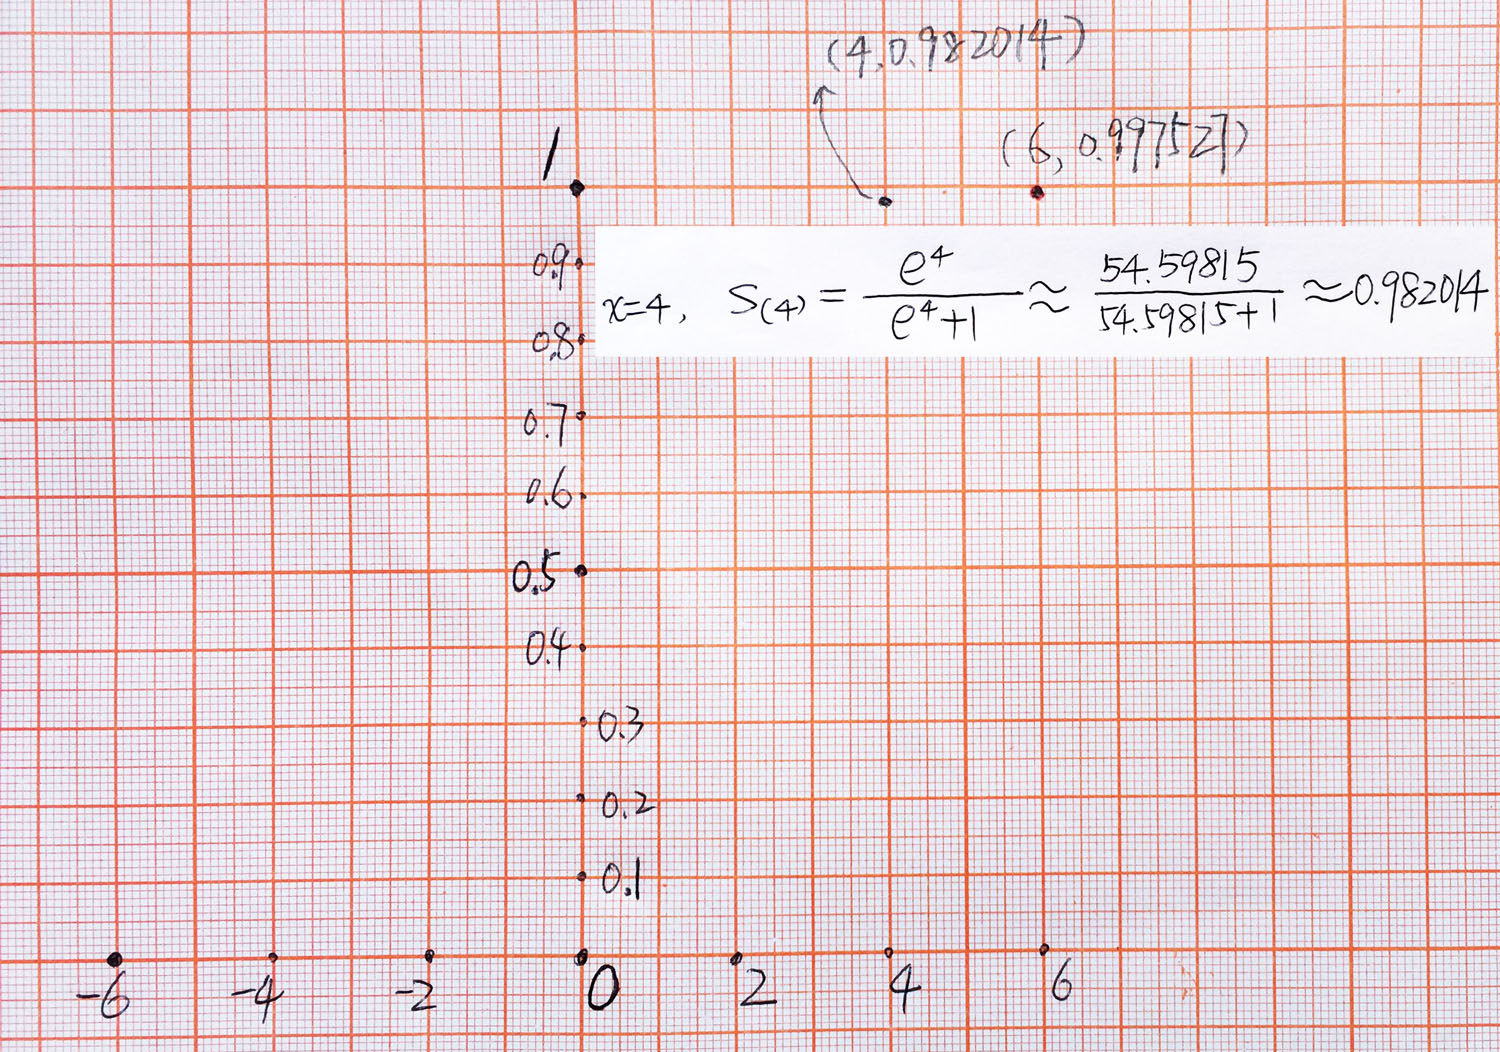 (4,0.982014)
(6,0.997527)
1
0.9
x=4, S(4) = e⁴/(e⁴+1) ≈ 54.59815/(54.59815+1) ≈0.982014
0.8
0.7
0.6
0.5
0.4
0.3
0.2
0.1
-6 -4 -2 0 2 4 6